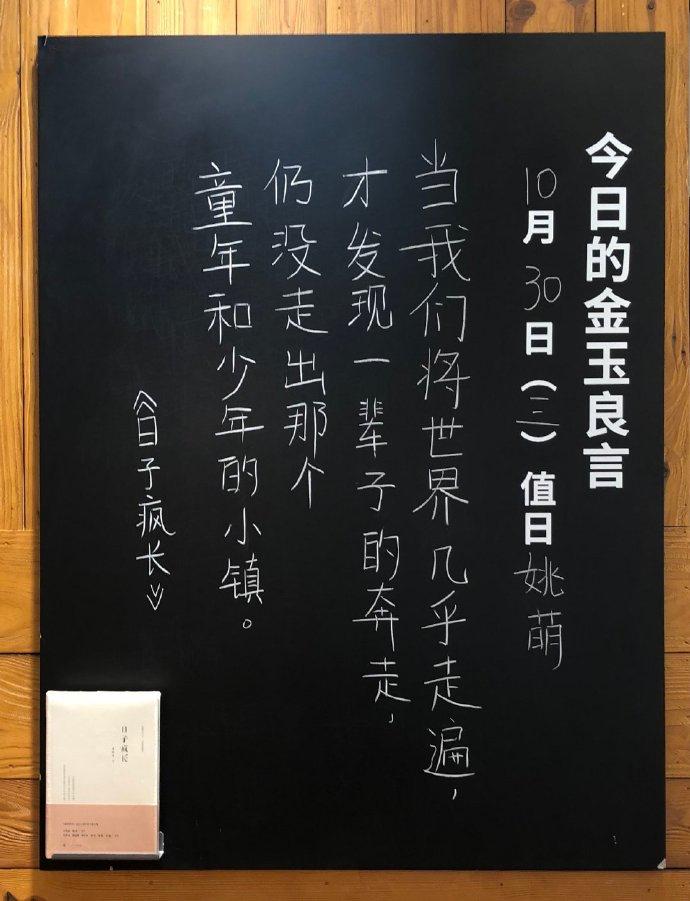 今日的金玉良言
10月30日（三）值日姚萌
当我们将世界几乎走遍，
才发现一辈子的奔走，
仍没走出那个
童年和少年的小镇。
《日子疯长》
日子疯长